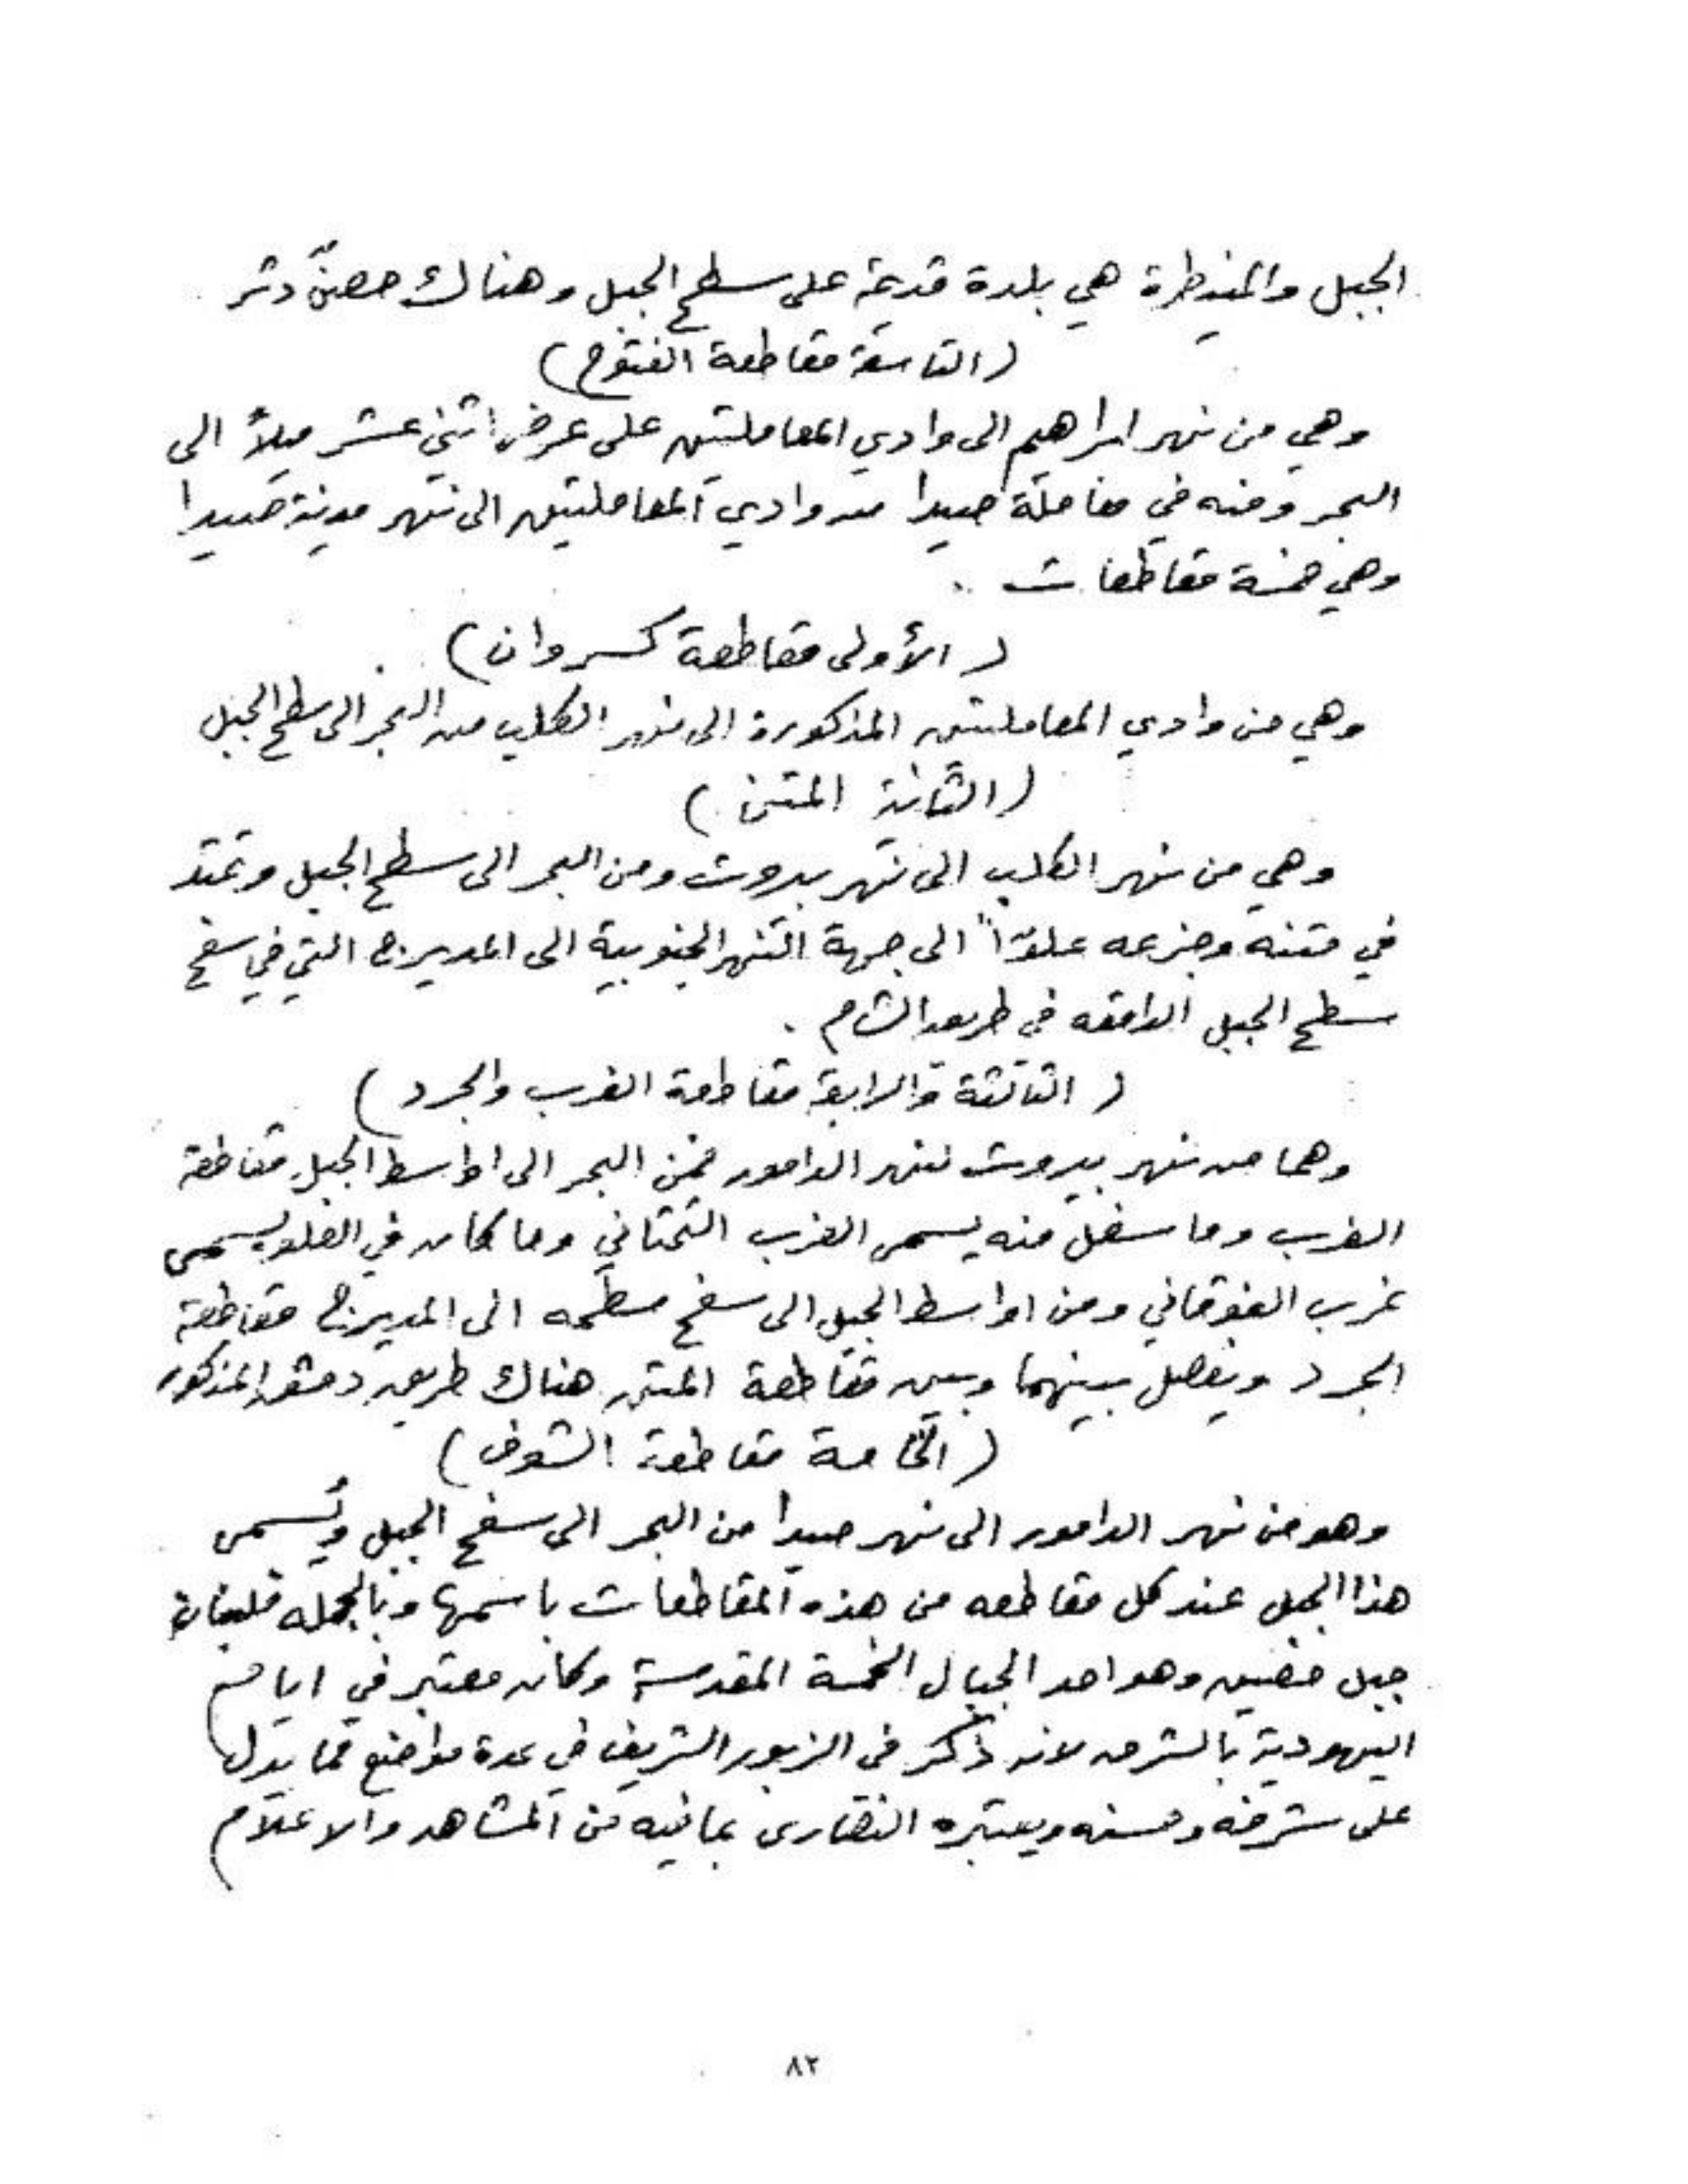 الجبل والمنيطرة هي بلدة قديمة على سطح الجبل وهناك حصنٌ دثر
(التاسعة مقاطعة الفتوح)
وهي من نهر ابراهيم الى وادي المعاملتين على عرض اثني عشر ميلاً الى
البحر ومنه في معاملة صيدا من وادي المعاملتين الى نهر مدينة صيدا
وهي خمسة مقاطعات .
(الأولى مقاطعة كسروان)
وهي من وادي المعاملتين المذكورة الى نهر الكلب من البحر الى سطح الجبل
(الثانية المتن)
وهي من نهر الكلب الى نهر بيروت ومن البحر الى سطح الجبل وتمتد
في متنه وجزعه علوّاً الى جهة النهر الجنوبية الى المديرج التي في سفح
سطح الجبل الواقعه في طريق الشام .
(الثالثة والرابعة مقاطعة الغرب والجرد)
وهما من نهر بيروت لنهر الدامور فمن البحر الى اواسط الجبل مقاطعة
الغرب وما سفل منه يسمى الغرب التحتاني وما كان في العلو يسمى
غرب الفوقاني ومن اواسط الجبل الى سفح سطحه الى المديرج مقاطعة
الجرد ويفصل بينهما وبين مقاطعة المتن هناك طريق دمشق المذكور
(الخامسة مقاطعة الشوف)
وهو من نهر الدامور الى نهر صيدا من البحر الى سفح الجبل ويُسمى
هذا الجبل عند كل مقاطعه من هذه المقاطعات باسمها وبالجمله فلبنان
جبل خصيب وهو احد الجبال الخمسة المقدسة وكان معتبر في ايام
اليهودية بالشرف لانه ذكر في الزبور الشريف في عدة مواضع مما يدل
على شرفه وحسنه ويعتبره النصارى بما فيه من المشاهد والاعلام
٨٢